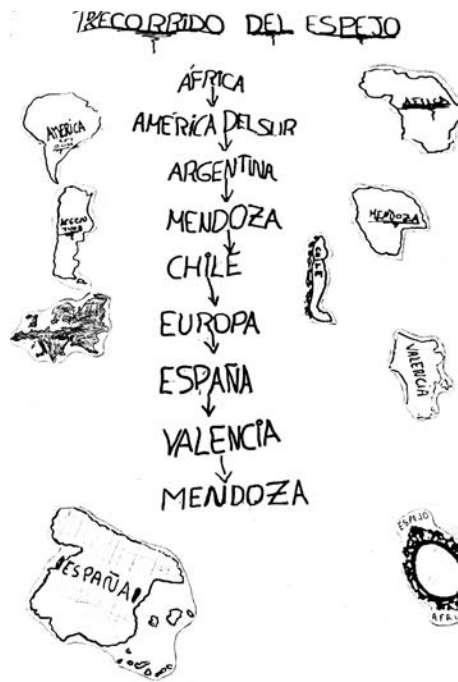 RECORRIDO DEL ESPEJO
ÁFRICA
AMÉRICA DEL SUR
ARGENTINA
MENDOZA
CHILE
EUROPA
ESPAÑA
VALENCIA
MENDOZA
AMÉRICA
AFRICA
MENDOZA
CHILE
VALENCIA
ESPAÑA
ESPEJO
AFRI